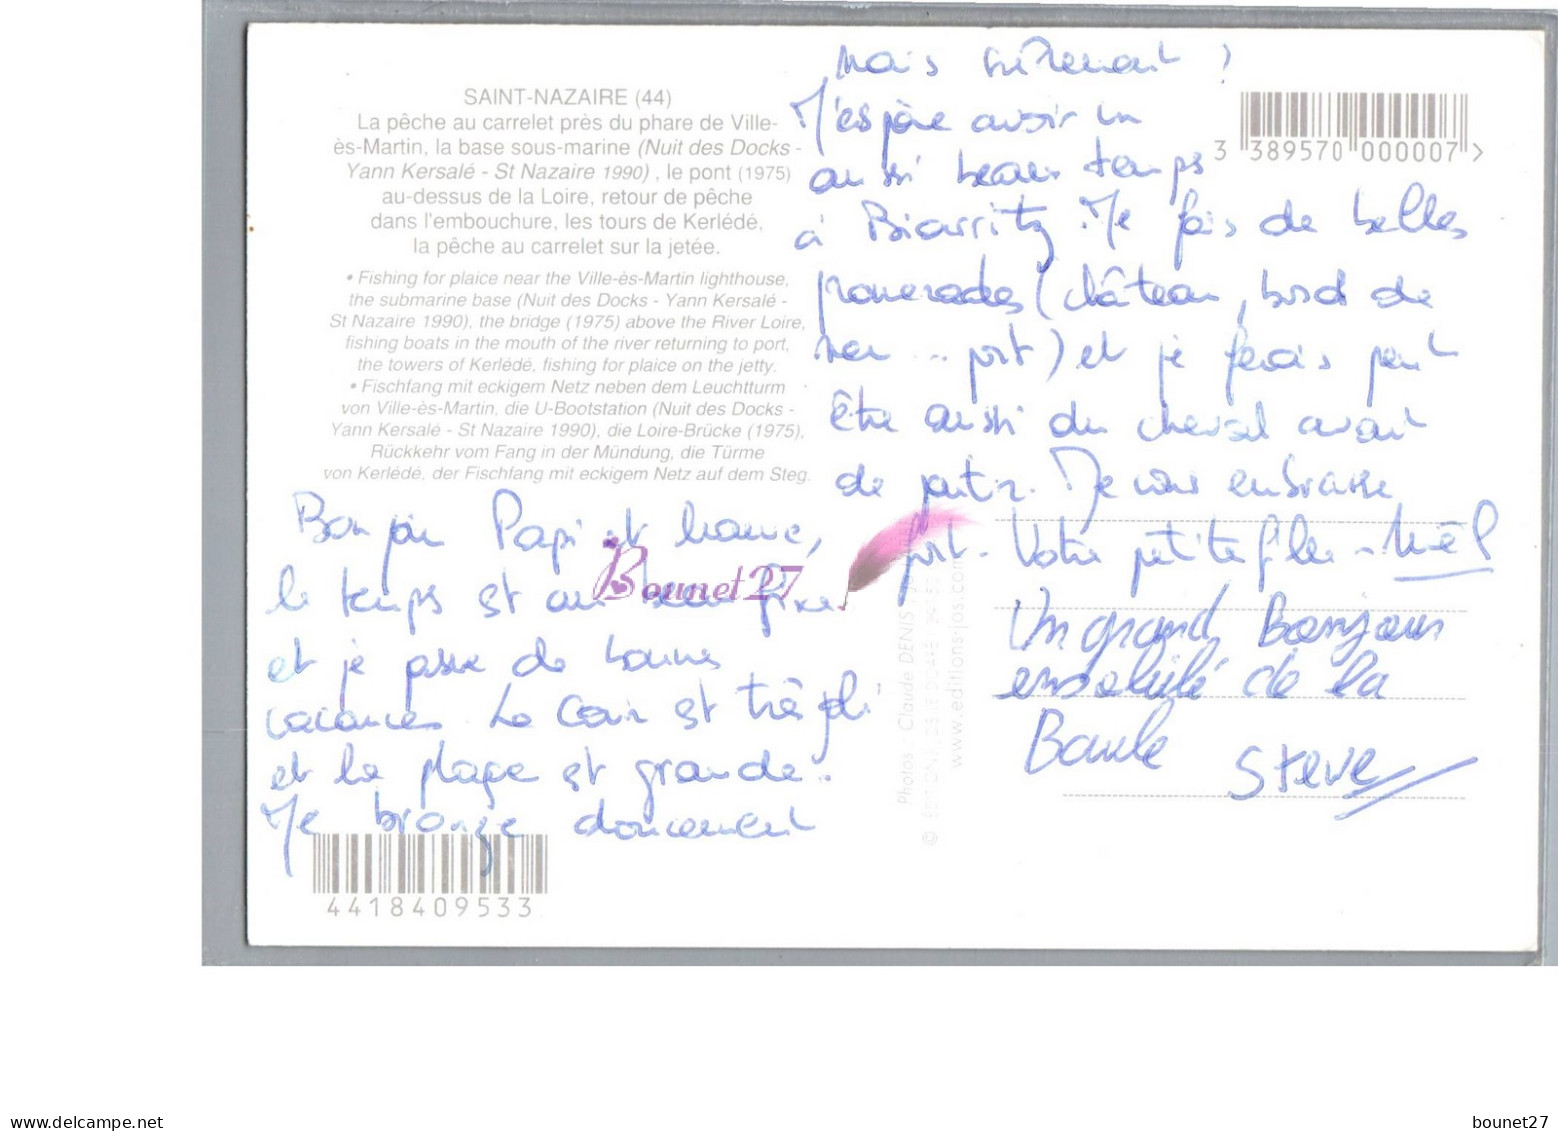 SAINT-NAZAIRE (44)
La pêche au carrelet près du phare de Ville-
ès-Martin, la base sous-marine (Nuit des Docks -
Yann Kersalé - St Nazaire 1990) , le pont (1975)
au-dessus de la Loire, retour de pêche
dans l'embouchure, les tours de Kerlédé,
la pêche au carrelet sur la jetée.
• Fishing for plaice near the Ville-ès-Martin lighthouse,
the submarine base (Nuit des Docks - Yann Kersalé -
St Nazaire 1990), the bridge (1975) above the River Loire,
fishing boats in the mouth of the river returning to port,
the towers of Kerlédé, fishing for plaice on the jetty.
• Fischfang mit eckigem Netz neben dem Leuchtturm
von Ville-ès-Martin, die U-Bootstation (Nuit des Docks -
Yann Kersalé - St Nazaire 1990), die Loire-Brücke (1975),
Rückkehr vom Fang in der Mündung, die Türme
von Kerlédé, der Fischfang mit eckigem Netz auf dem Steg.
Bonjour Papi et mamie,
le temps est au beau fixe
et je passe de bonnes
vacances. Le coin est très joli
et la plage est grande.
Je bronze doucement
4418409533
mais sûrement !
J'espère avoir un
aussi beau temps
à Biarritz. Je fais de belles
promenades (château, bord de
mer ... port) et je ferais peut
être aussi du cheval avant
de partir. Je vous embrasse
fort. Votre petite fille
Un grand Bonjour
ensoleillé de la
Baule
Steve
3 389570 000007 >
Photos : Claude DENIS
www.editions-jos.com
Bounet27
delcampe.net
bounet27